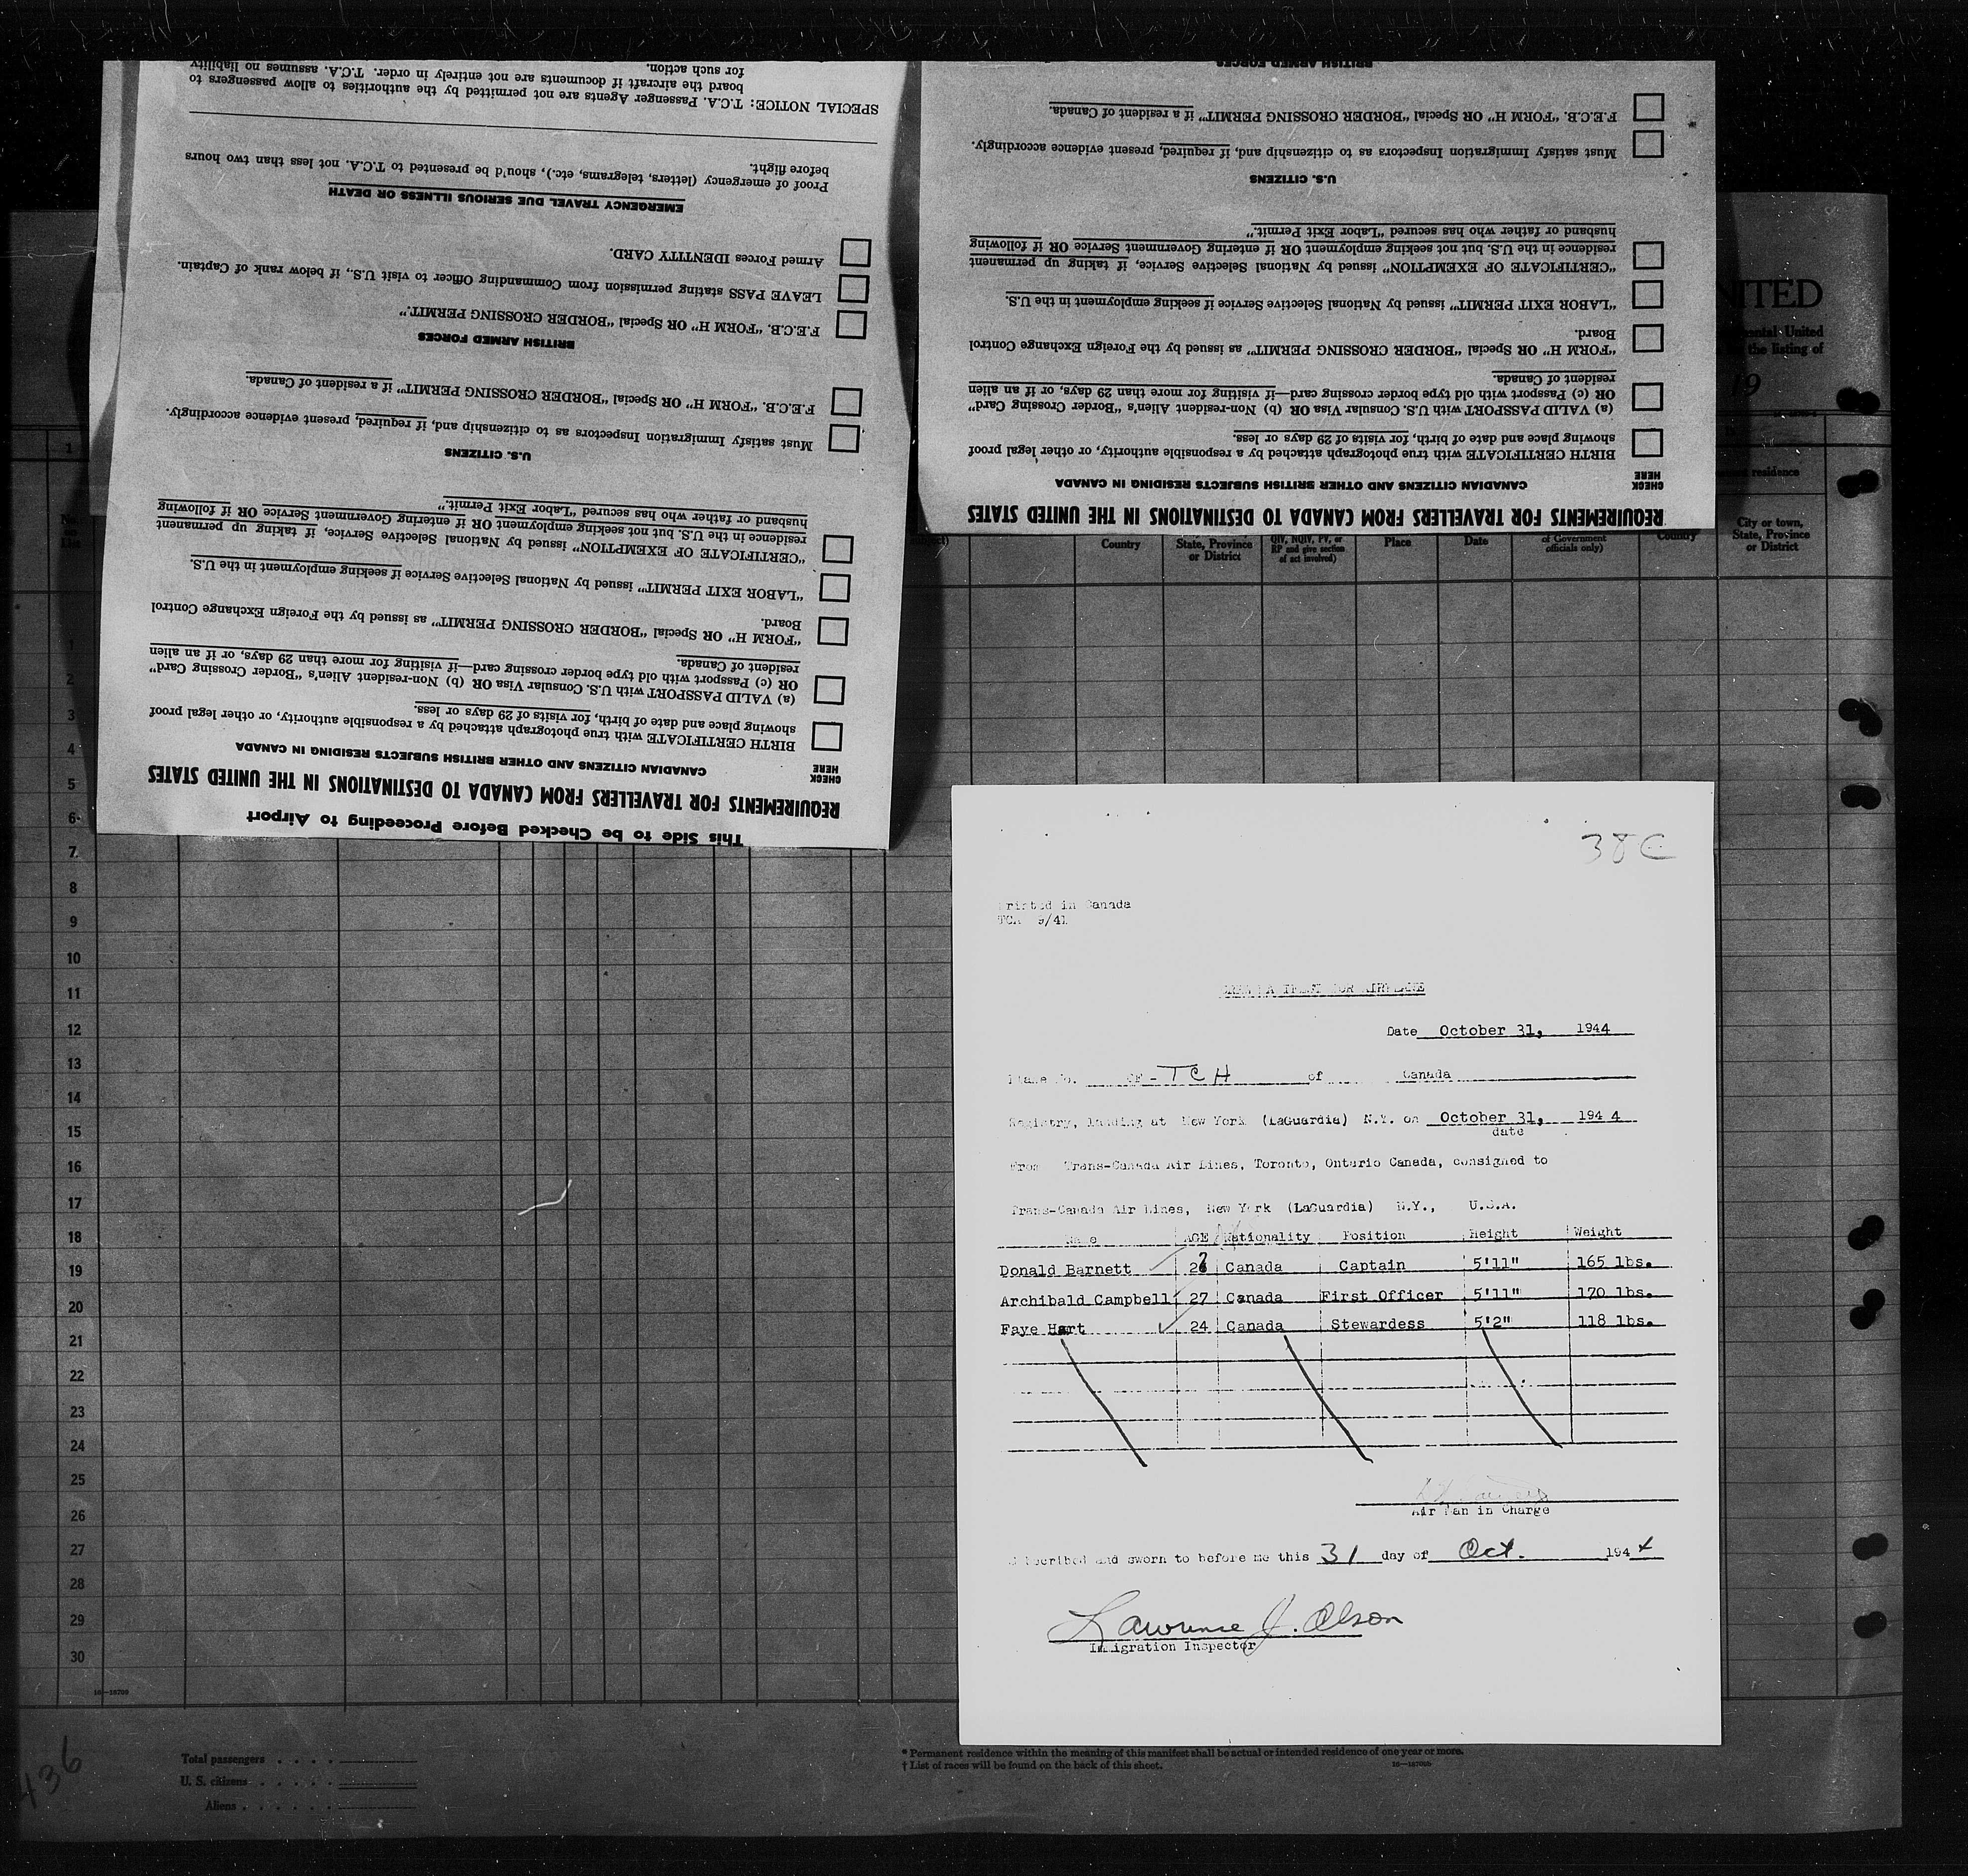 This Side to be Checked Before Proceeding to Airport
REQUIREMENTS FOR TRAVELLERS FROM CANADA TO DESTINATIONS IN THE UNITED STATES
CHECK
HERE
CANADIAN CITIZENS AND OTHER BRITISH SUBJECTS RESIDING IN CANADA
BIRTH CERTIFICATE with true photograph attached by a responsible authority, or other legal proof
showing place and date of birth, for visits of 29 days or less.
(a) VALID PASSPORT with U.S. Consular Visa OR (b) Non-resident Alien's "Border Crossing Card"
OR (c) Passport with old type border crossing card—if visiting for more than 29 days, or if an alien
resident of Canada.
"FORM H" OR Special "BORDER CROSSING PERMIT" as issued by the Foreign Exchange Control
Board.
"LABOR EXIT PERMIT" issued by National Selective Service if seeking employment in the U.S.
"CERTIFICATE OF EXEMPTION" issued by National Selective Service, if taking up permanent
residence in the U.S. but not seeking employment OR if entering Government Service OR if following
husband or father who has secured "Labor Exit Permit."
U.S. CITIZENS
Must satisfy Immigration Inspectors as to citizenship and, if required, present evidence accordingly.
F.E.C.B. "FORM H" OR Special "BORDER CROSSING PERMIT" if a resident of Canada.
BRITISH ARMED FORCES
F.E.C.B. "FORM H" OR Special "BORDER CROSSING PERMIT."
LEAVE PASS stating permission from Commanding Officer to visit U.S., if below rank of Captain.
Armed Forces IDENTITY CARD.
EMERGENCY TRAVEL DUE SERIOUS ILLNESS OR DEATH
Proof of emergency (letters, telegrams, etc.), shou'd be presented to T.C.A. not less than two hours
before flight.
SPECIAL NOTICE: T.C.A. Passenger Agents are not permitted by the authorities to allow passengers to
board the aircraft if documents are not entirely in order. T.C.A. assumes no liability
for such action.
REQUIREMENTS FOR TRAVELLERS FROM CANADA TO DESTINATIONS IN THE UNITED STATES
CHECK
HERE
CANADIAN CITIZENS AND OTHER BRITISH SUBJECTS RESIDING IN CANADA
BIRTH CERTIFICATE with true photograph attached by a responsible authority, or other legal proof
showing place and date of birth, for visits of 29 days or less.
(a) VALID PASSPORT with U.S. Consular Visa OR (b) Non-resident Alien's "Border Crossing Card"
OR (c) Passport with old type border crossing card—if visiting for more than 29 days, or if an alien
resident of Canada.
"FORM H" OR Special "BORDER CROSSING PERMIT" as issued by the Foreign Exchange Control
Board.
"LABOR EXIT PERMIT" issued by National Selective Service if seeking employment in the U.S.
"CERTIFICATE OF EXEMPTION" issued by National Selective Service, if taking up permanent
residence in the U.S. but not seeking employment OR if entering Government Service OR if following
husband or father who has secured "Labor Exit Permit."
U.S. CITIZENS
Must satisfy Immigration Inspectors as to citizenship and, if required, present evidence accordingly.
F.E.C.B. "FORM H" OR Special "BORDER CROSSING PERMIT" if a resident of Canada.
BRITISH ARMED FORCES
United
the listing of
residence
Country
State, Province
or District
QIV, NQIV, PV, or
RP and give section
of act involved)
Place
Date
of Government
officials only)
Country
City or town,
State, Province
or District
1
No.
on
List
1
2
3
4
5
6
7
8
9
10
11
12
13
14
15
16
17
18
19
20
21
22
23
24
25
26
27
28
29
30
16—18700
38C
Printed in Canada
TCA 9/41
CREW MANIFEST FOR AIRPLANE
Date October 31, 1944
Plane No. CF-TCH of Canada
Registry, landing at New York (LaGuardia) N.Y. on October 31, 1944
date
From Trans-Canada Air Lines, Toronto, Ontario Canada, consigned to
Trans-Canada Air Lines, New York (LaGuardia) N.Y., U.S.A.
Name AGE Nationality Position Height Weight
Donald Barnett 27 Canada Captain 5'11" 165 lbs.
Archibald Campbell 27 Canada First Officer 5'11" 170 lbs.
Faye Hart 24 Canada Stewardess 5'2" 118 lbs.
Air Man in Charge
Subscribed and sworn to before me this 31 day of Oct. 1944
Lawrence J. Olson
Immigration Inspector
436
Total passengers . . . .
U. S. citizens . . . . .
Aliens . . . . . .
* Permanent residence within the meaning of this manifest shall be actual or intended residence of one year or more.
† List of races will be found on the back of this sheet.